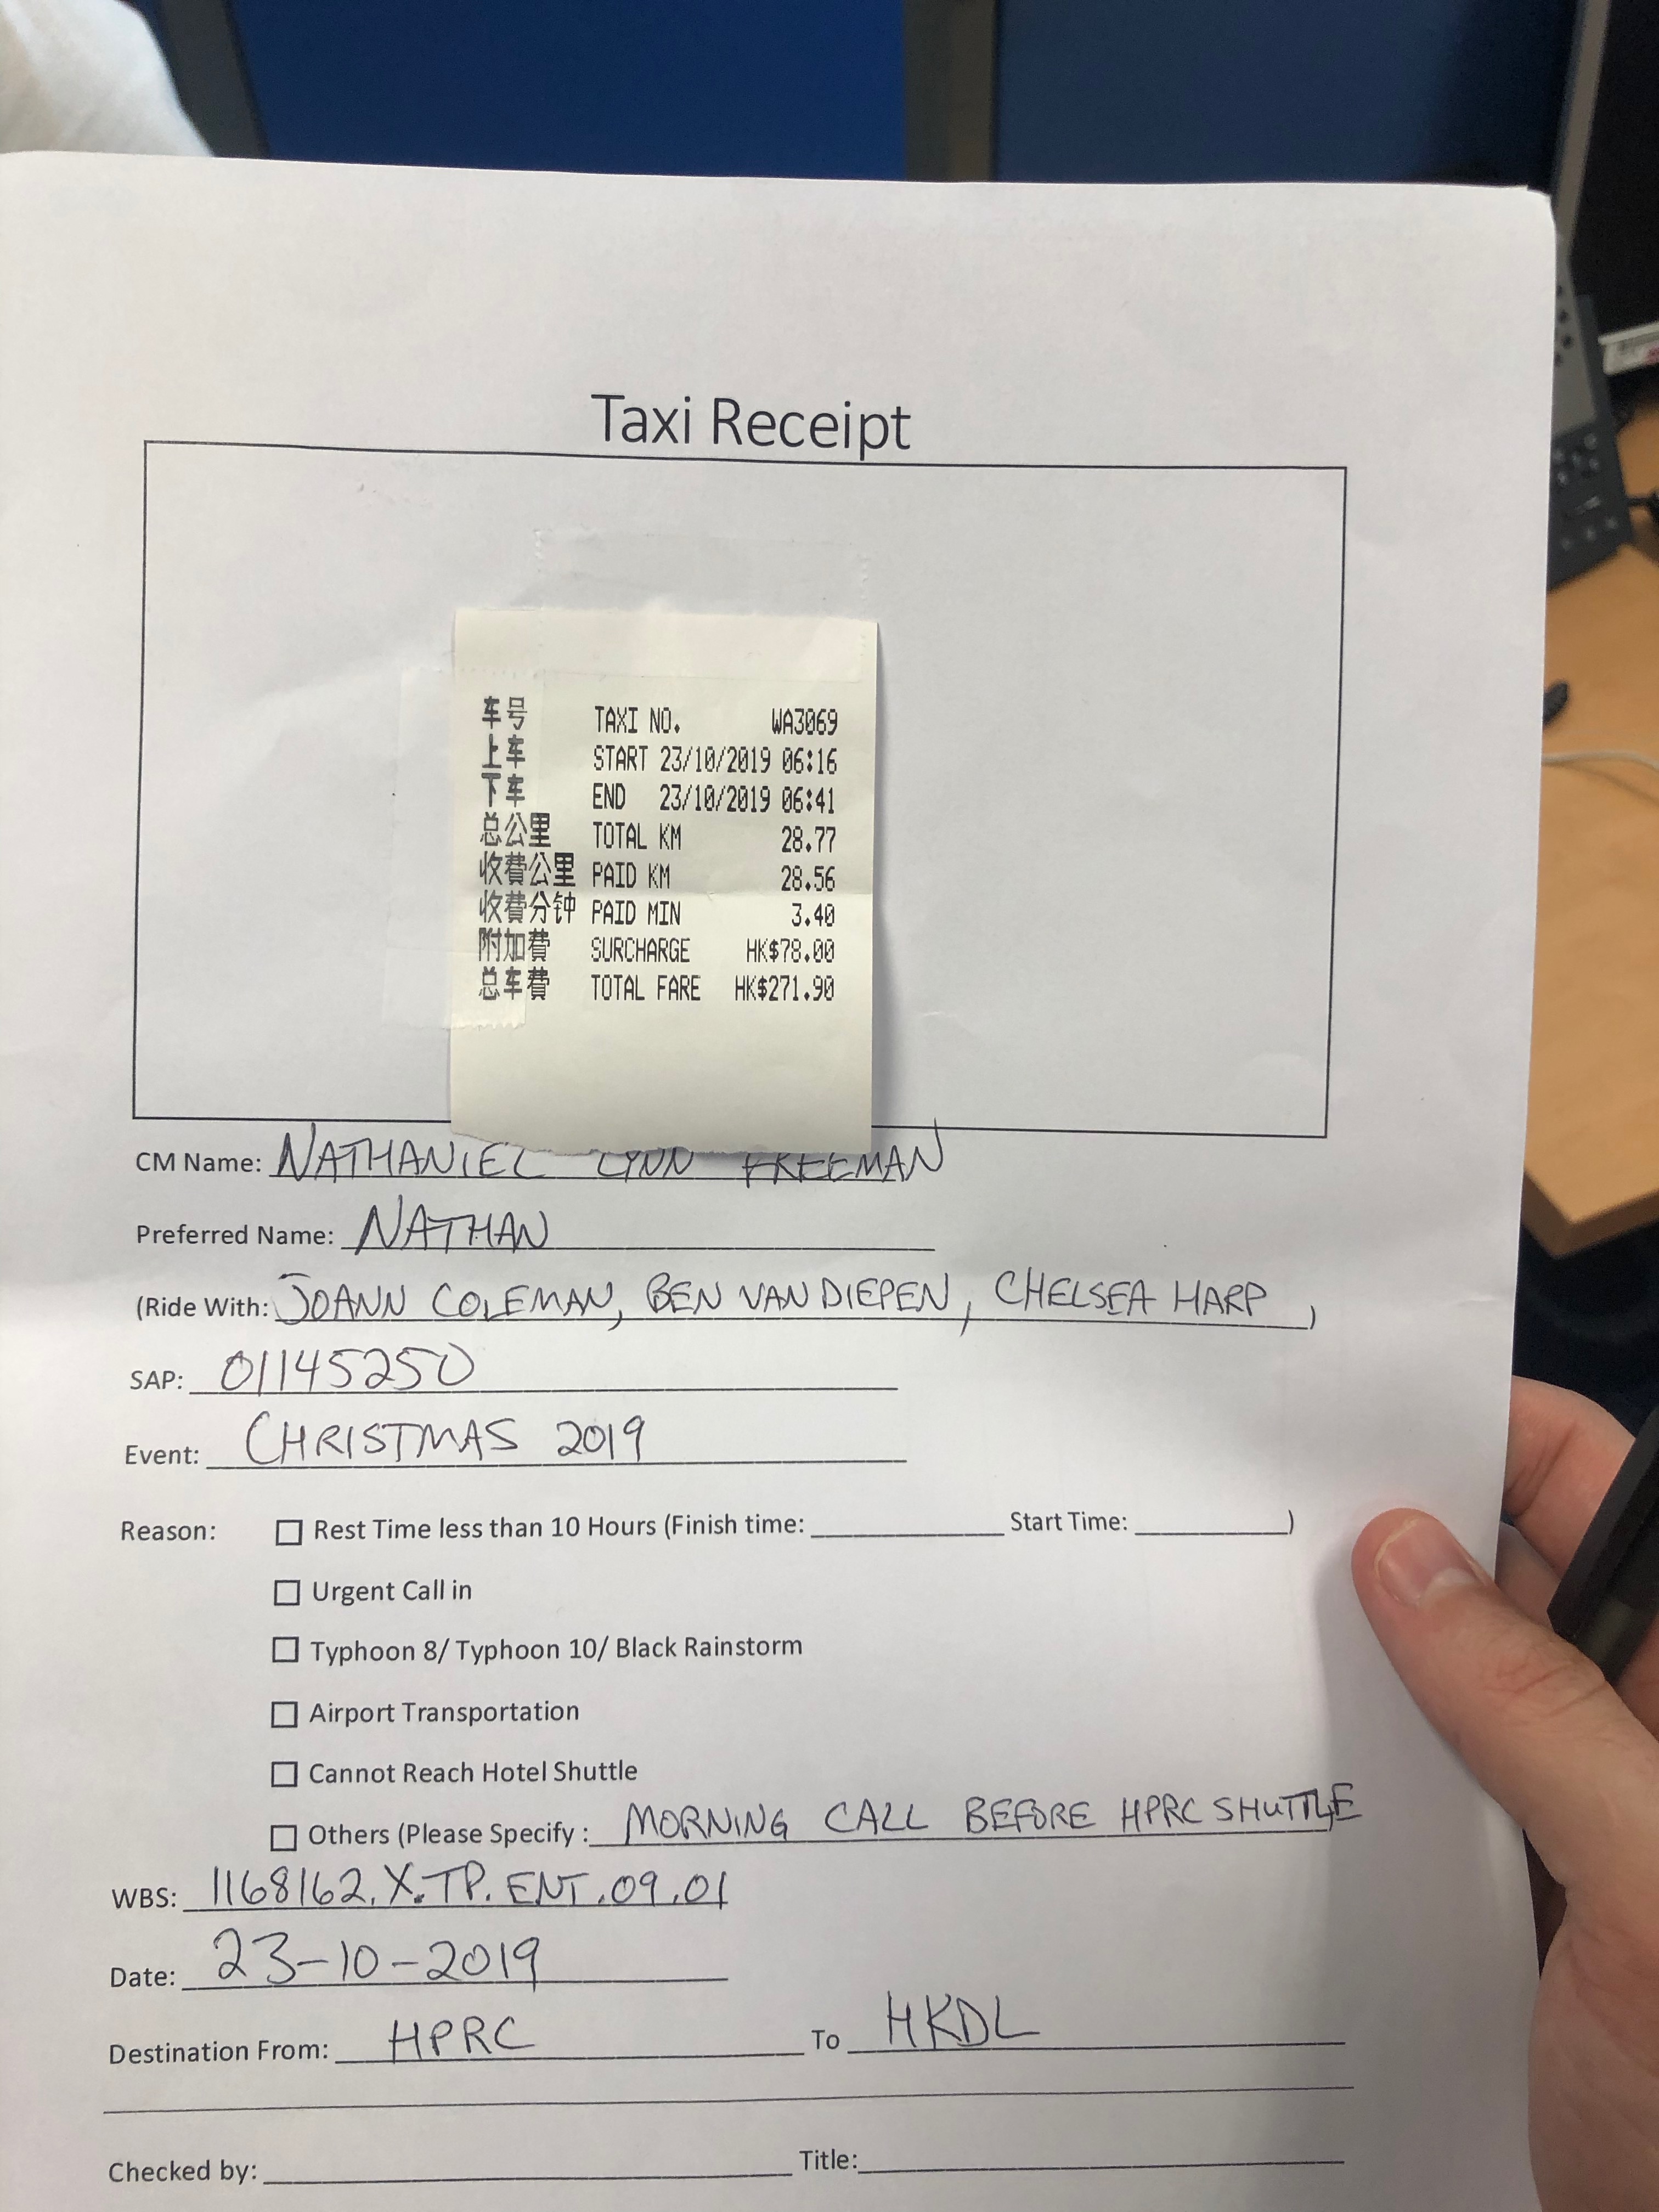 Taxi Receipt
车号 TAXI NO. WA3069
上车 START 23/10/2019 06:16
下车 END 23/10/2019 06:41
总公里 TOTAL KM 28.77
收費公里 PAID KM 28.56
收費分钟 PAID MIN 3.40
附加費 SURCHARGE HK$78.00
总车費 TOTAL FARE HK$271.90
CM Name: NATHANIEL LYNN FREEMAN
Preferred Name: NATHAN
(Ride With: JOANN COLEMAN, BEN VAN DIEPEN, CHELSEA HARP )
SAP: 01145250
Event: CHRISTMAS 2019
Reason: □ Rest Time less than 10 Hours (Finish time: Start Time: )
□ Urgent Call in
□ Typhoon 8/ Typhoon 10/ Black Rainstorm
□ Airport Transportation
□ Cannot Reach Hotel Shuttle
□ Others (Please Specify : MORNING CALL BEFORE HPRC SHUTTLE
WBS: 1168162.X.TP.ENT.09.01
Date: 23-10-2019
Destination From: HPRC To HKDL
Checked by: Title: